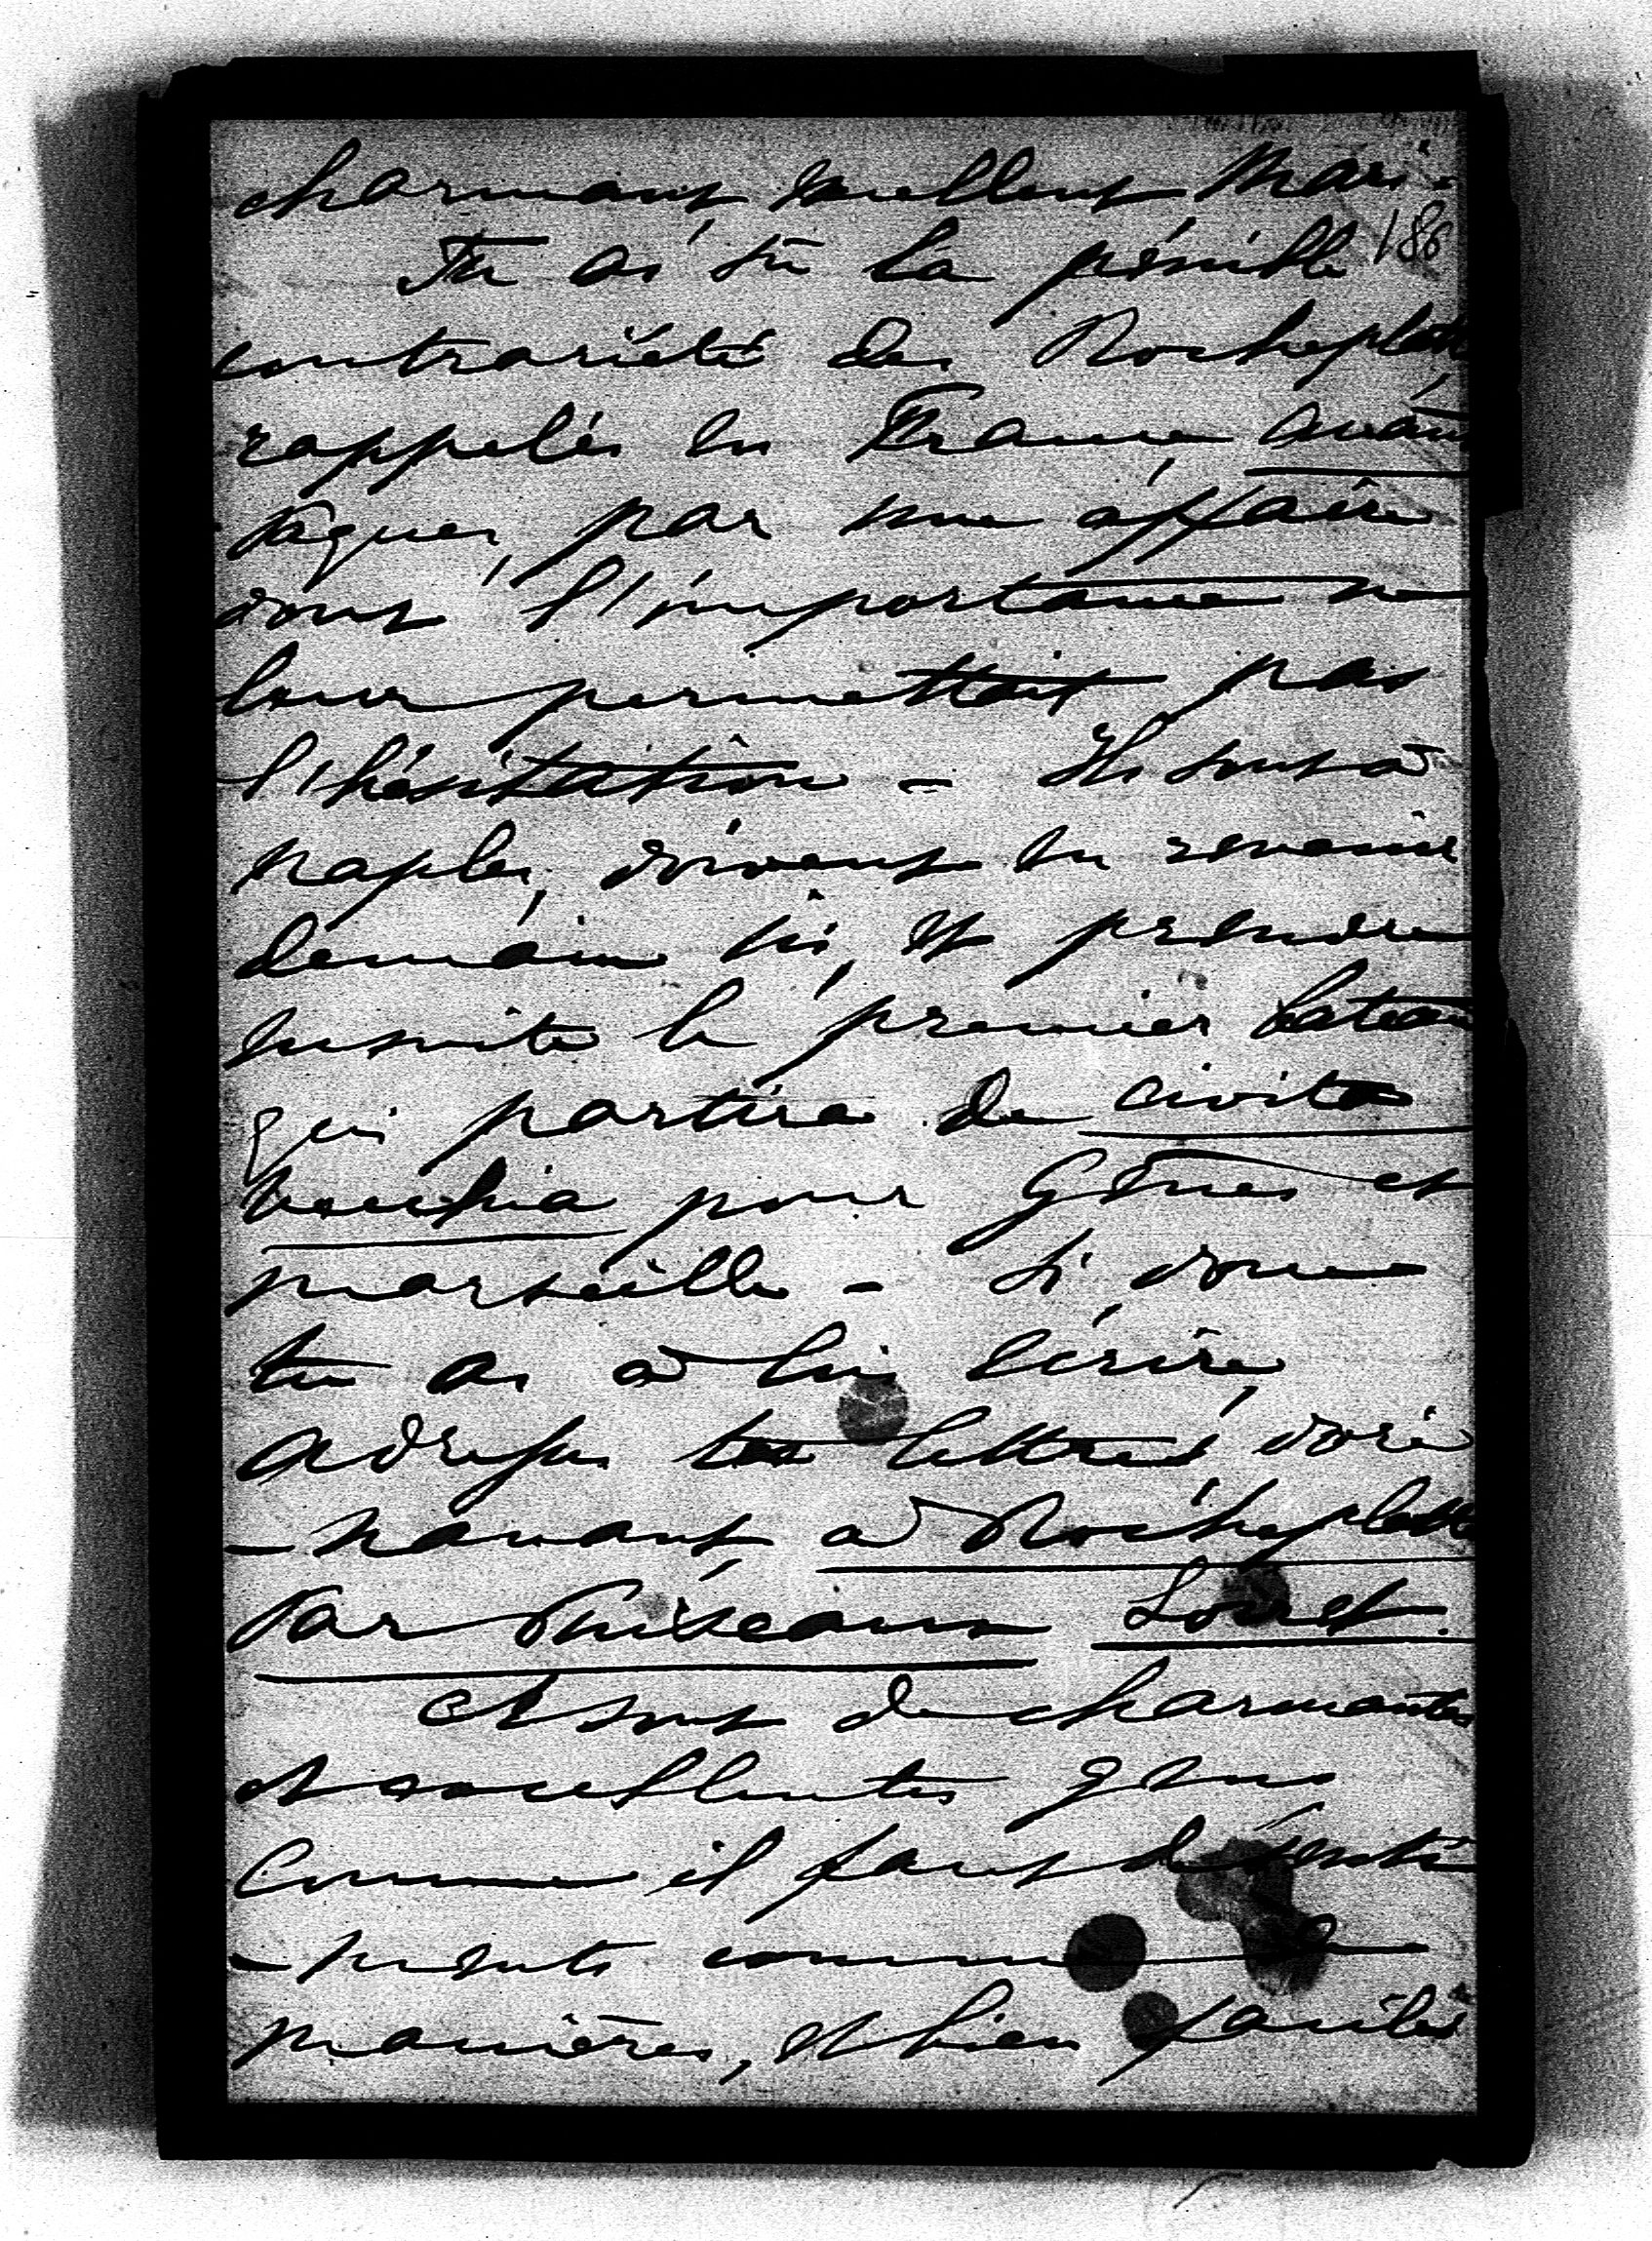 charmant, excellent Mari.
186
Tu as sû la pénible
contrariété des Rocheplatte
rappelés en France avant
Pâques, par une affaire
dont l'importance ne
leur permettait pas
l'hésitation - Ils sont à
naples, doivent en revenir
demain ici, et prendre
ensuite le premier bateau
qui partira de civita
vecchia pour Gênes et
marseille - Si donc
tu as à lui écrire,
adresses tes lettres doré
-navant, à Rocheplatte
Par Puiseaux Loiret.
Ce sont de charmantes
et excellentes gens
comme il faut de senti
-ments comme de
manières, et bien faciles